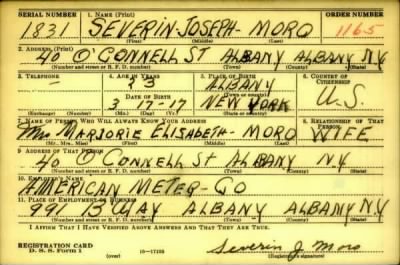 SERIAL NUMBER 1. NAME (Print) ORDER NUMBER
1831 SEVERIN-JOSEPH-MORO 1165
(First) (Middle) (Last)
2. ADDRESS (Print)
40 O'CONNELL ST ALBANY ALBANY N.Y
(Number and street or R. F. D. number) (Town) (County) (State)
3. TELEPHONE 4. AGE IN YEARS 5. PLACE OF BIRTH 6. COUNTRY OF CITIZENSHIP
— 23 ALBANY
DATE OF BIRTH (Town or county)
3 17-17 NEW YORK U.S.
(Exchange) (Number) (Mo.) (Day) (Yr.) (State or country)
7. NAME OF PERSON WHO WILL ALWAYS KNOW YOUR ADDRESS 8. RELATIONSHIP OF THAT PERSON
Mrs MARJORIE ELISABETH-MORO WIFE
(Mr., Mrs., Miss) (First) (Middle) (Last)
9. ADDRESS OF THAT PERSON
40 O'CONNELL ST ALBANY N.Y
(Number and street or R. F. D. number) (Town) (County) (State)
10. EMPLOYER'S NAME
AMERICAN METER-CO
11. PLACE OF EMPLOYMENT OR BUSINESS
991 B'WAY ALBANY ALBANY N.Y
(Number and street or R. F. D. number) (Town) (County) (State)
I AFFIRM THAT I HAVE VERIFIED ABOVE ANSWERS AND THAT THEY ARE TRUE.
REGISTRATION CARD
D. S. S. Form 1 (over) 16—17105 Severin J. Moro
(Registrant's signature)